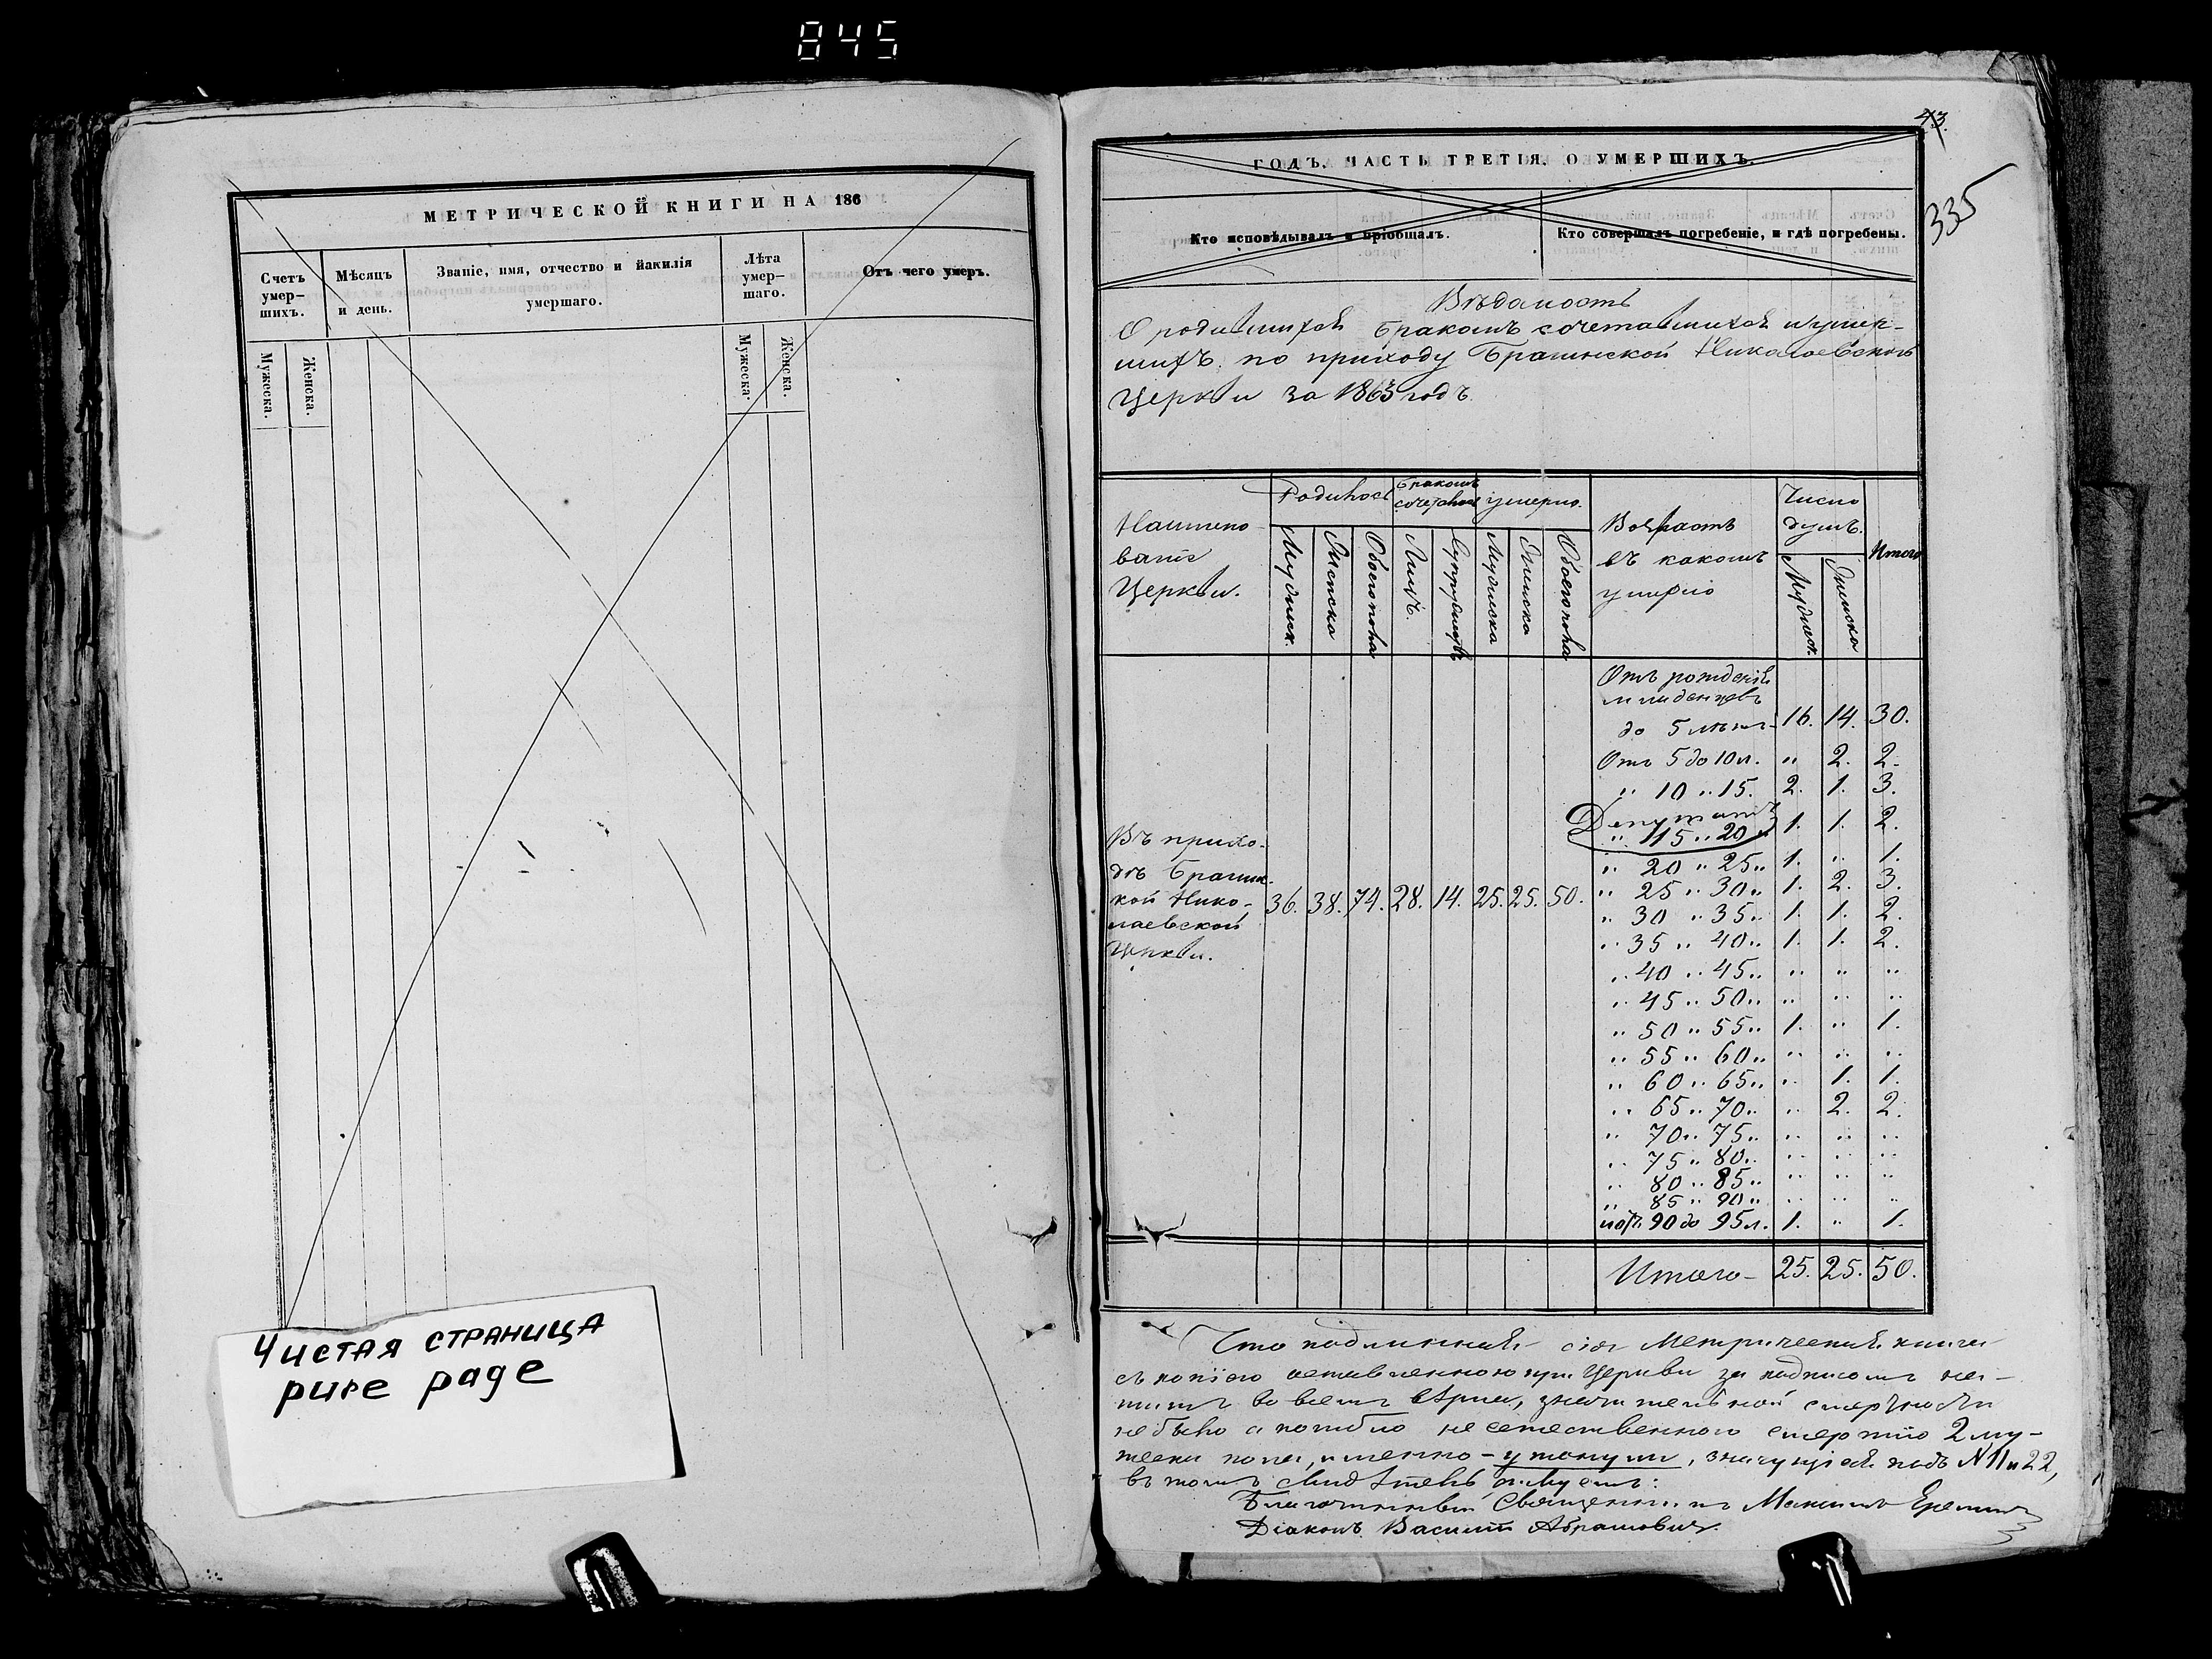 845
МЕТРИЧЕСКОЙ КНИГИ НА 186
Счетъ умер-шихъ.
Мѣсяцъ и день.
Званіе, имя, отчество и йакилія умершаго.
Лѣта умер-шаго.
Отъ чего умеръ.
Мужеска.
Женска.
Мужеска.
Женска.
Чистая страница
pure page
43.
335
ГОДЪ. ЧАСТЬ ТРЕТІЯ. О УМЕРШИХЪ.
Кто исповѣдывалъ и пріобщалъ.
Кто совершалъ погребеніе, и гдѣ погребены.
Вѣдомость
О родившихся бракомъ сочетавшихся и умер-
шихъ по приходу Брагинской Николаевской
Церкви за 1863 годъ.
Наимено
ваніе
Церкви.
Родилось
Бракомъ
сочеталось
умерло.
Возрастъ
въ какомъ
умерло
Число
душъ.
Итого
Мужеск.
Женска
Обоего пола
Лицъ.
Супружествъ
Мужеска
Женска
Обоего пола
Мужеск.
Женска
Въ прихо-
дѣ Брагин-
кой Нико-
лаевской
Церкви.
36. 38. 74. 28. 14. 25. 25. 50.
Отъ рожденія
младенцевъ
до 5 лѣтъ 16. 14. 30.
Отъ 5 до 10 л. " 2. 2.
" 10 " 15. 2. 1. 3.
Депутатъ
" 115 " 20 " 1. 1. 2.
" 20 " 25 " 1. " 1.
" 25 " 30 " 1. 2. 3.
" 30 " 35 " 1. 1. 2.
" 35 " 40 " 1. 1. 2.
" 40 " 45 " " " "
" 45 " 50 " " " "
" 50 " 55 " 1. " 1.
" 55 " 60 " " " "
" 60 " 65 " " 1. 1.
" 65 " 70 " " 2. 2.
" 70 " 75 " " " "
" 75 " 80 " " " "
" 80 " 85 " " " "
" 85 " 90 " " " "
90 до 95 л. 1. " 1.
Итого- 25. 25. 50.
Что подлинная сія Метрическая книга
съ копіею оставленною при Церкви за подписомъ
во всемъ вѣрна, значительной смертности
не было а погибло не естественною смертію 2 му-
жеска пола, именно - утонули, значущіяся подъ №11 и 22,
въ томъ свидѣтельствуемъ:
Благочинный Священникъ Максимъ
Діаконъ Василій Абрамовичъ.